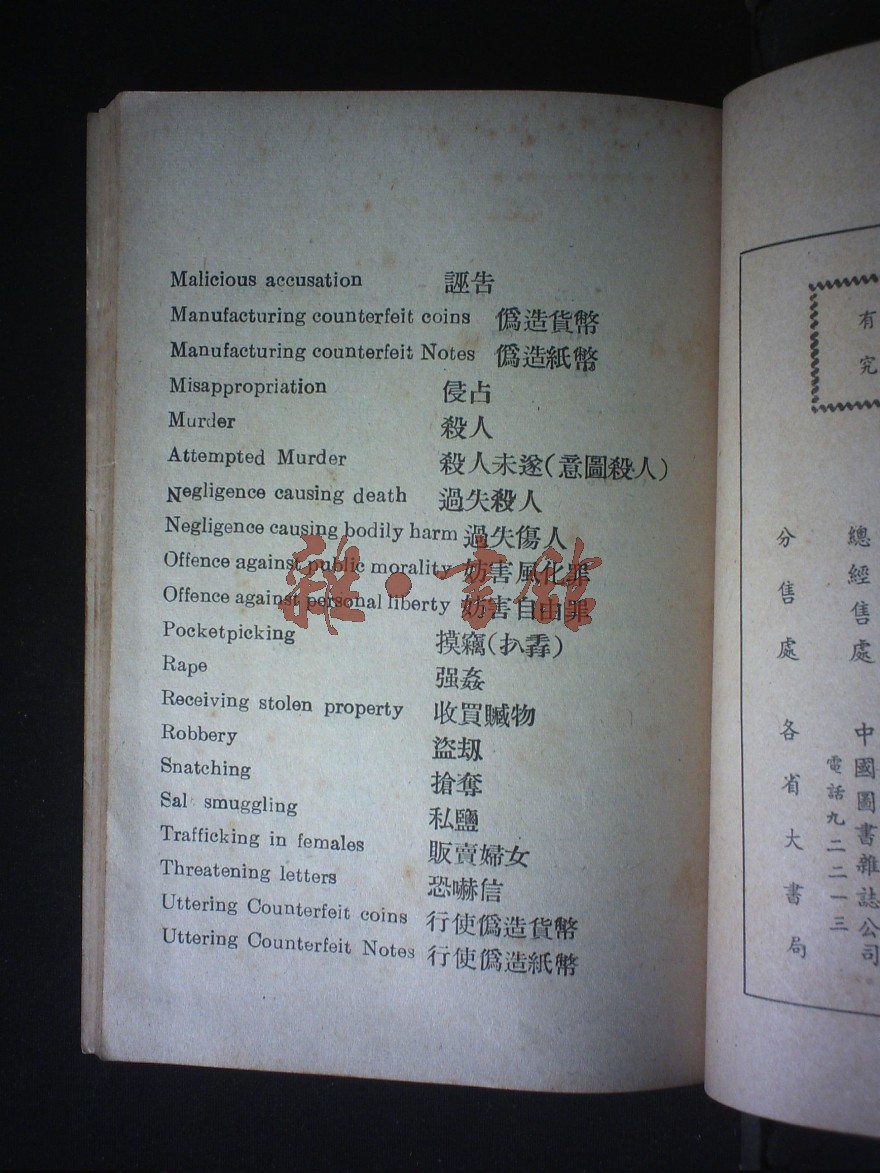 Malicious accusation 誣告
Manufacturing counterfeit coins 僞造貨幣
Manufacturing counterfeit Notes 僞造紙幣
Misappropriation 侵占
Murder 殺人
Attempted Murder 殺人未遂(意圖殺人)
Negligence causing death 過失殺人
Negligence causing bodily harm 過失傷人
Offence against public morality 妨害風化罪
Offence against personal liberty 妨害自由罪
Pocketpicking 摸竊(扒掱)
Rape 强姦
Receiving stolen property 收買贓物
Robbery 盜刼
Snatching 搶奪
Sal smuggling 私鹽
Trafficking in females 販賣婦女
Threatening letters 恐嚇信
Uttering Counterfeit coins 行使僞造貨幣
Uttering Counterfeit Notes 行使僞造紙幣
雜·書館
有
究
總經售處 中國圖書雜誌公司
電話九二二一三
分售處 各省大書局